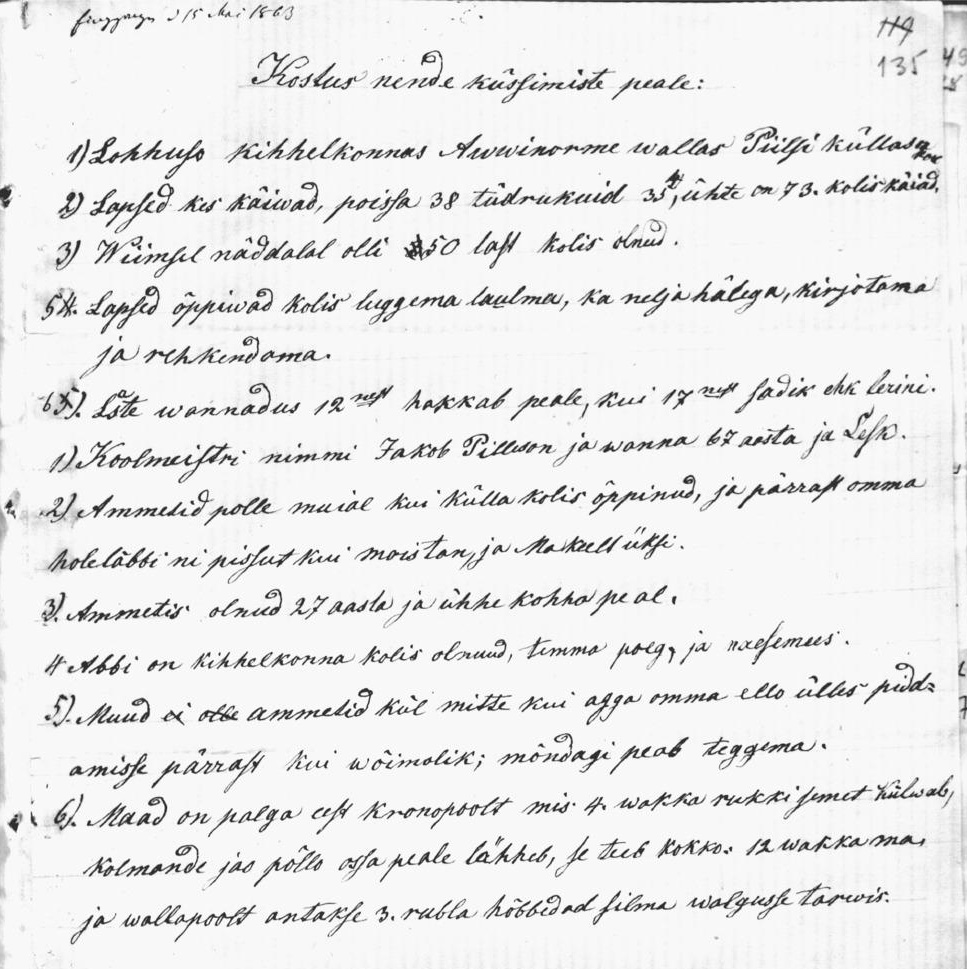 15 Mai 1863
119
135
Kostus nende küssimiste peale:
1) Lohhuso kihhelkonnas Awwinorme wallas Piilsi küllas
2) Lapsed kes käiwad, poissa 38 tüdrukuid 35, ühte on 73. kolis käiad.
3) Wiimsel näddalal olli 50 last kolis olnud.
54. Lapsed õppiwad kolis luggema laulma, ka nelja hälega, kirjotama
ja rehkendama.
65). Lste wannadus 12 nest hakkab peale, kui 17 nest sadik ehk lerini.
1) Koolmeistri nimmi Jakob Pilleson ja wanna 67 aasta ja Lesk.
2) Ammetid polle muial kui külla kolis õppinud, ja pärrast omma
hole läbbi ni pissut kui moistan, ja Ma keelt üksi.
3). Ammetis olnud 27 aasta ja ühhe kohha peal.
4 Abbi on kihhelkonna kolis olnuud, temma poeg, ja naesemees.
5). Muud ei olle ammetid kül mitte kui agga omma ello ülles pidd=
amisse pärrast kui wõimalik; mõndagi peab teggema.
6). Maad on palga eest kronopoolt mis 4. wakka rukki semet külwab,
kolmande jao põllo ossa peale lähheb, se teeb kokko: 12 wakka ma,
ja wallapoolt antakse 3. rubla hõbbedad silma walgusse tarwis.